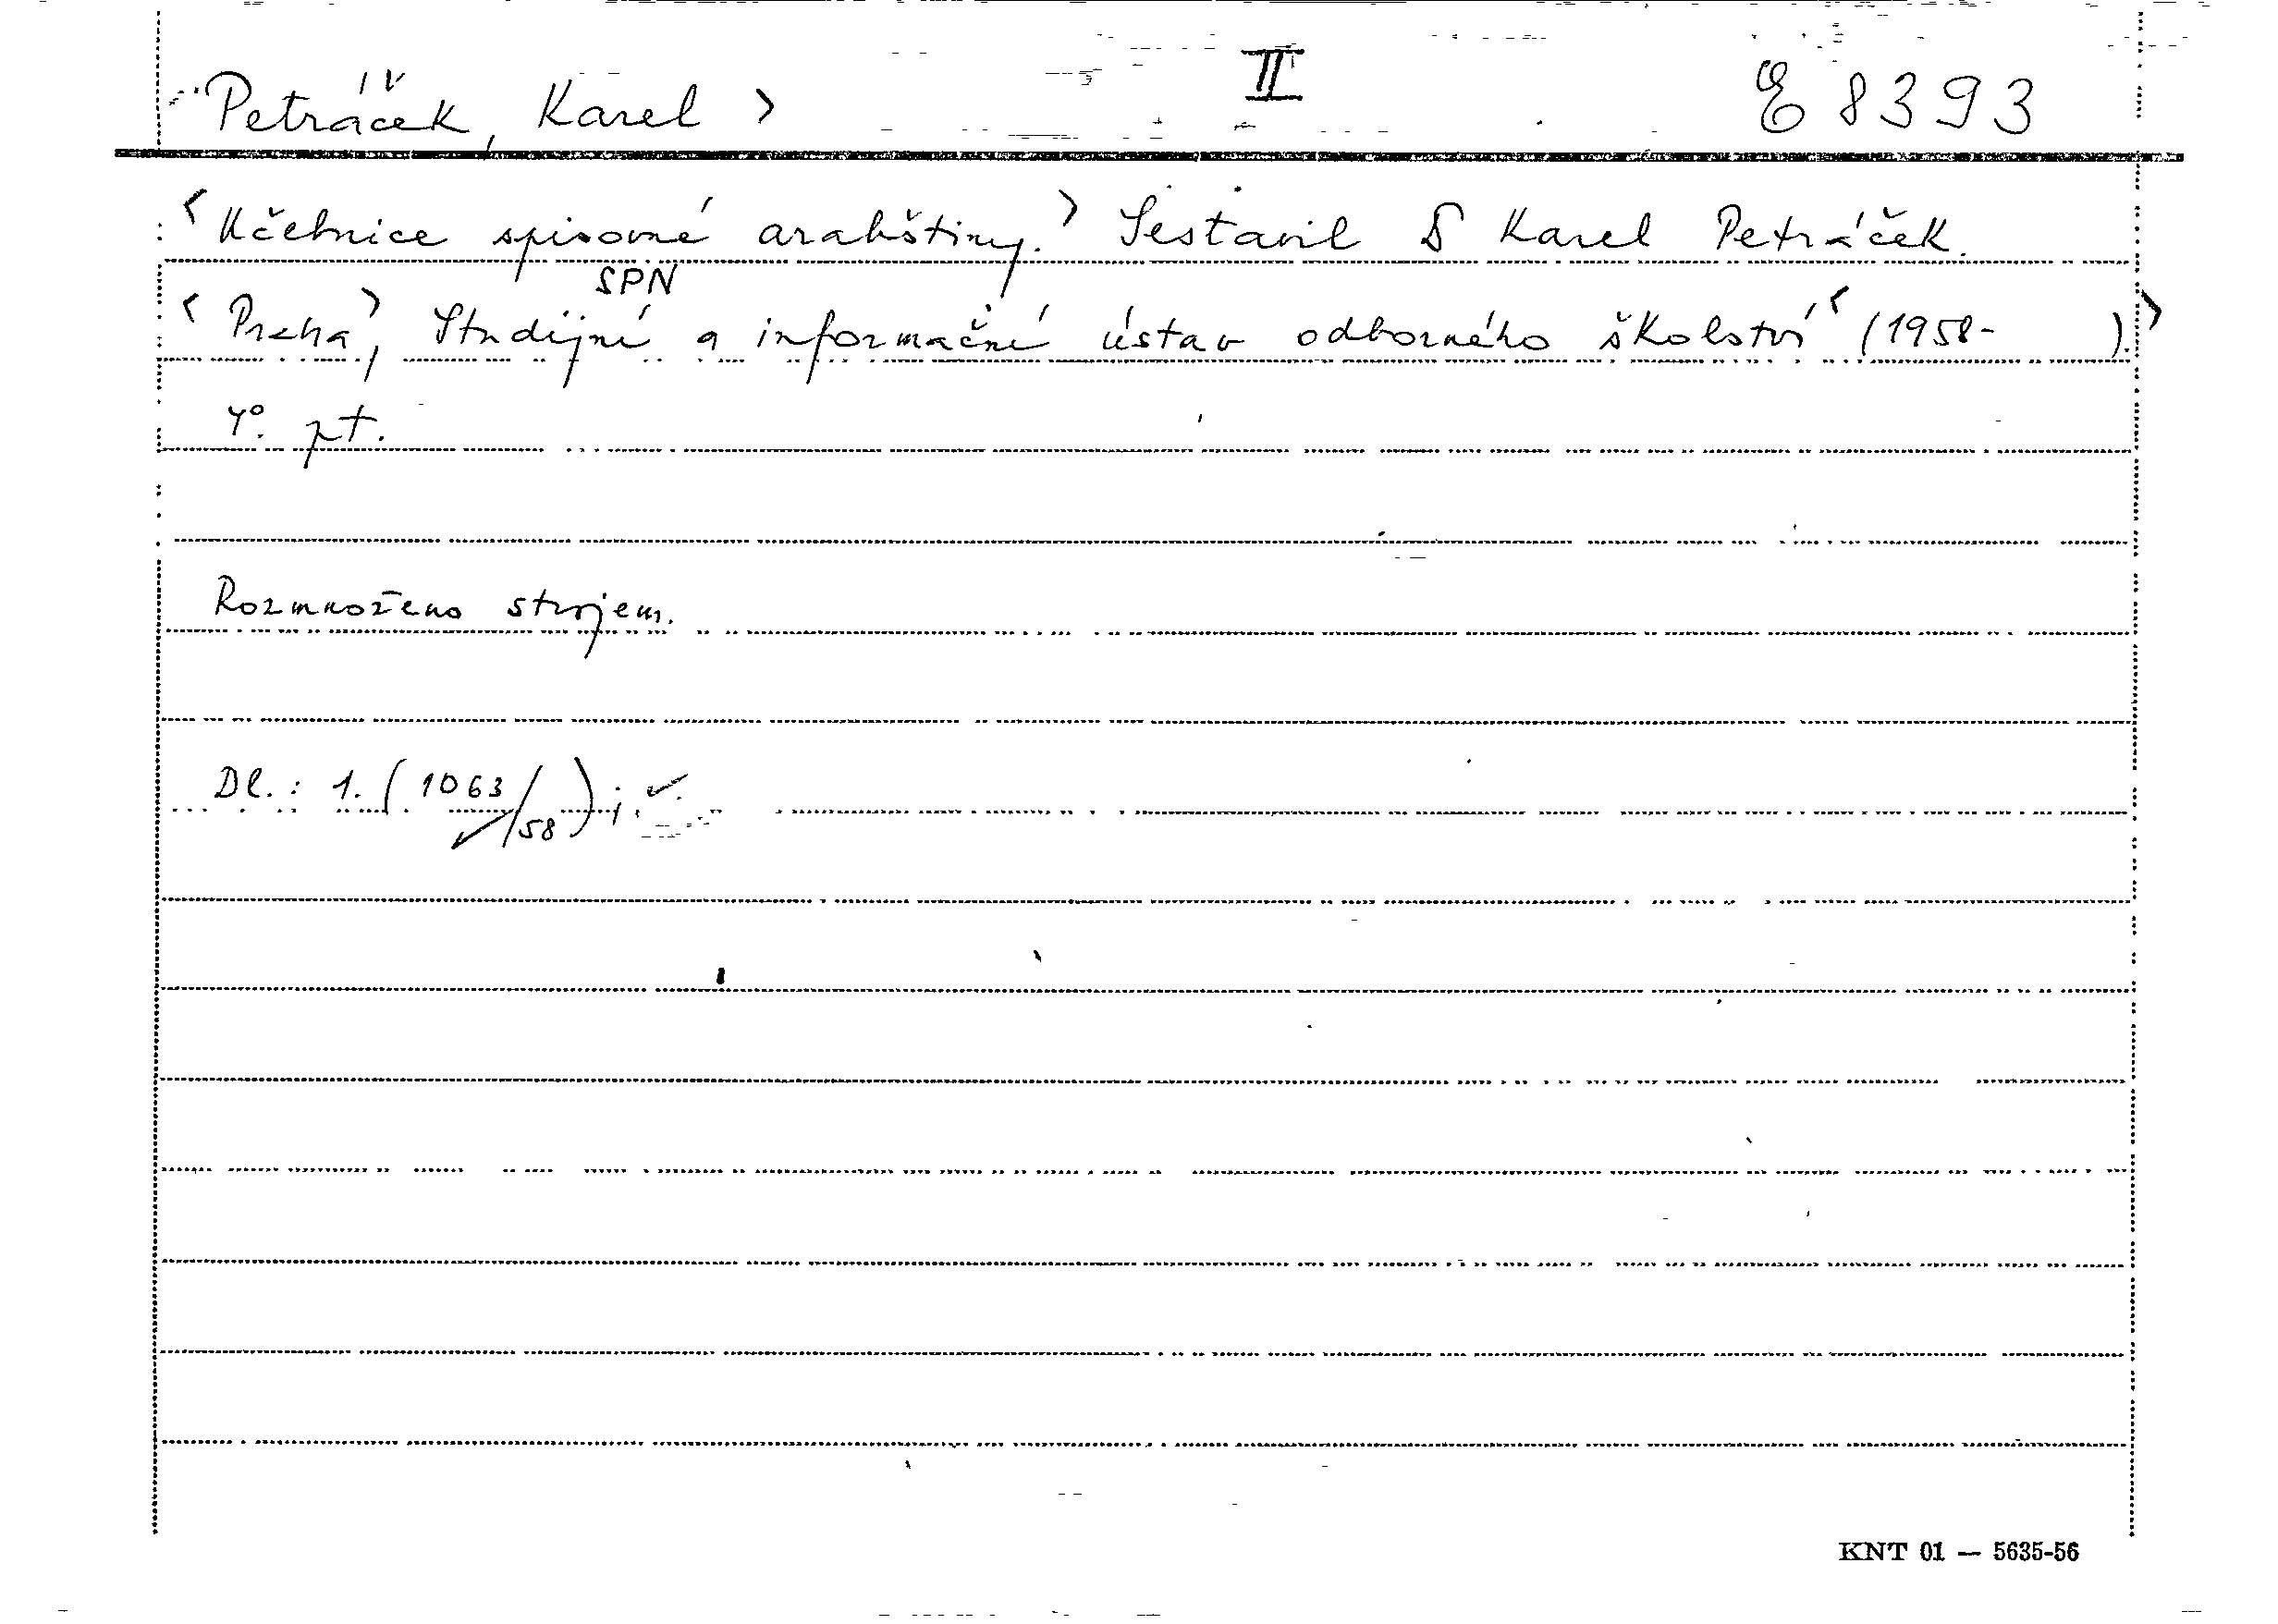 Petráček, Karel > II E 8393
< Učebnice spisovné arabštiny. > Sestavil Karel Petráček.
SPN
< Praha >, Studijní a informační ústav odborného školství < (1958- ). >
4°. pt.
Rozmnoženo strojem.
Dl.: 1. (1063/58);
KNT 01 — 5635-56